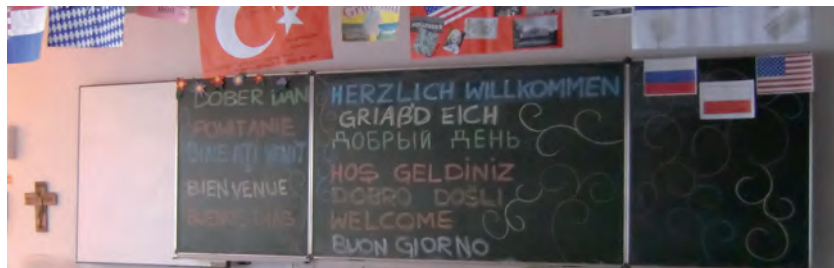 DOBER DAN
POWITANIE
BINE AȚI VENIT
BIENVENUE
BUENOS DIAS
HERZLICH WILLKOMMEN
GRIAß'D EICH
ДОБРЫЙ ДЕНЬ
HOŞ GELDİNİZ
DOBRO DOŠLI
WELCOME
BUON GIORNO